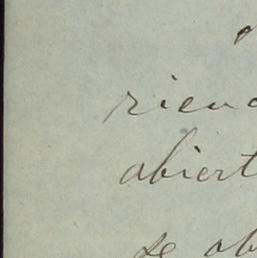 riend
abiert
se ob